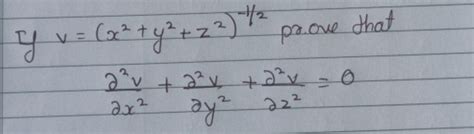 If v = (x² + y² + z²)^-1/2 prove that
∂²v/∂x² + ∂²v/∂y² + ∂²v/∂z² = 0